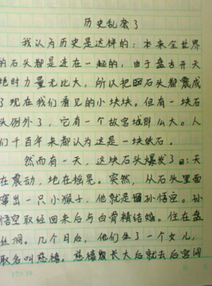 历史乱套了
我认为历史是这样的:本来全世界
的石头都是连在一起的,由于盘古开天
地时力量无比大,所以把石头都震成
了现在我们看见的小块块。但有一块石
头例外了,它有一个故宫城那么大。人
们千百年来都认为这是一块怪石。
然而有一天,这块石头爆发了:天
在震动,地在摇晃。突然,从石头里面
蹦出一只小猴子。他就是孙悟空。孙
悟空取经回来后与白骨精结婚。住在盘
丝洞,几个月后,他们生了一个女儿,
取名叫慈禧。慈禧长大后就去后宫